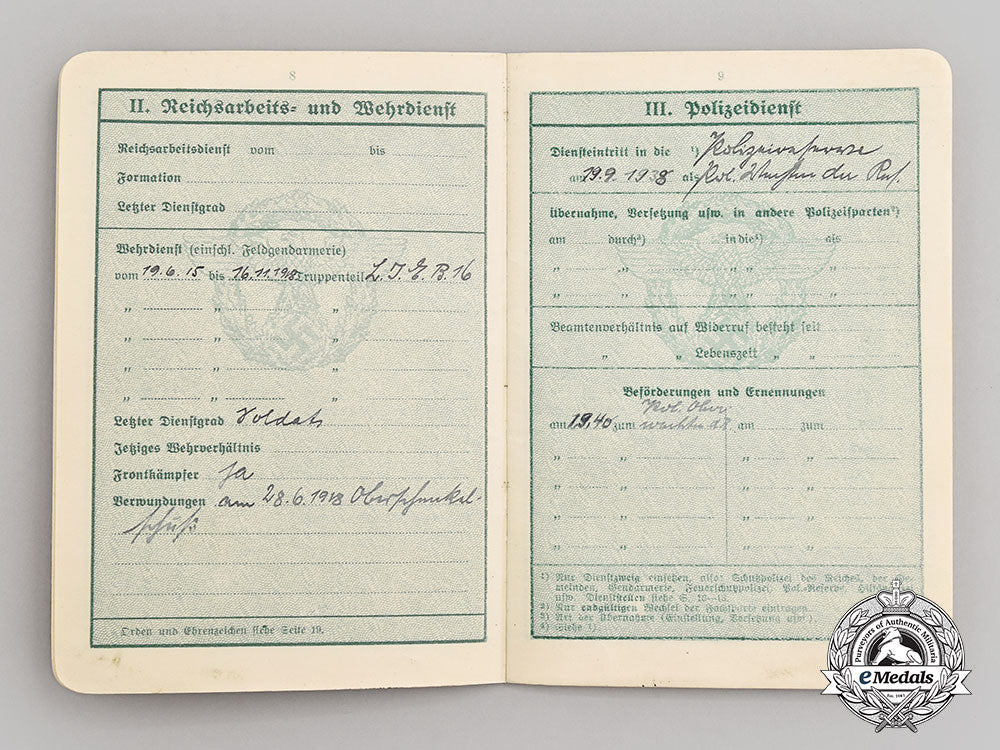 8
II. Reichsarbeits- und Wehrdienst
Reichsarbeitsdienst vom bis
Formation
Letzter Dienstgrad
Wehrdienst (einschl. Feldgendarmerie)
vom 19.6.15 bis 16.11.18 Truppenteil L. I. E. B. 16
„ „ „
„ „ „
„ „ „
„ „ „
Letzter Dienstgrad Soldat
Jetziges Wehrverhältnis
Frontkämpfer ja
Verwundungen am 28.6.1918 Oberschenkel-
schuß
Orden und Ehrenzeichen siehe Seite 19.
9
III. Polizeidienst
Diensteintritt in die ¹) Polizeireserve
am 19.9.1938 als Pol. der Res.
Übernahme, Versetzung usw. in andere Polizeisparten²)
am durch³) in die⁴) als
„ „ „ „ „
„ „ „ „ „
Beamtenverhältnis auf Widerruf besteht seit
„ „ Lebenszeit „ „
Beförderungen und Ernennungen
Pol. Ober
am 19.40 zum wachtm. d.R. am zum
„ „ „ „
„ „ „ „
„ „ „ „
„ „ „ „
¹) Nur Dienstzweig einsetzen, also: Schutzpolizei des Reiches, der Ge-
meinden, Gendarmerie, Feuerschutzpolizei, Pol.-Reserve,
usw. Dienststellen siehe S.
²) Nur endgültigen Wechsel der Fachsparte eintragen.
³) Art der Übernahme (Einstellung, Versetzung usw.)
⁴) Siehe ¹)
Purveyors of Authentic Militaria
eMedals